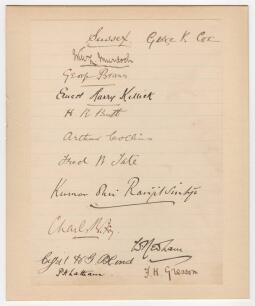 Sussex George R. Cox
W. L. Murdoch
George Bean
Ernest Harry Killick
H R Butt
Arthur Collins
Fred W Tate
Kumar Shri Ranjitsinhji
C. H. G. Bland
P. H. Latham
F. H. Gresson